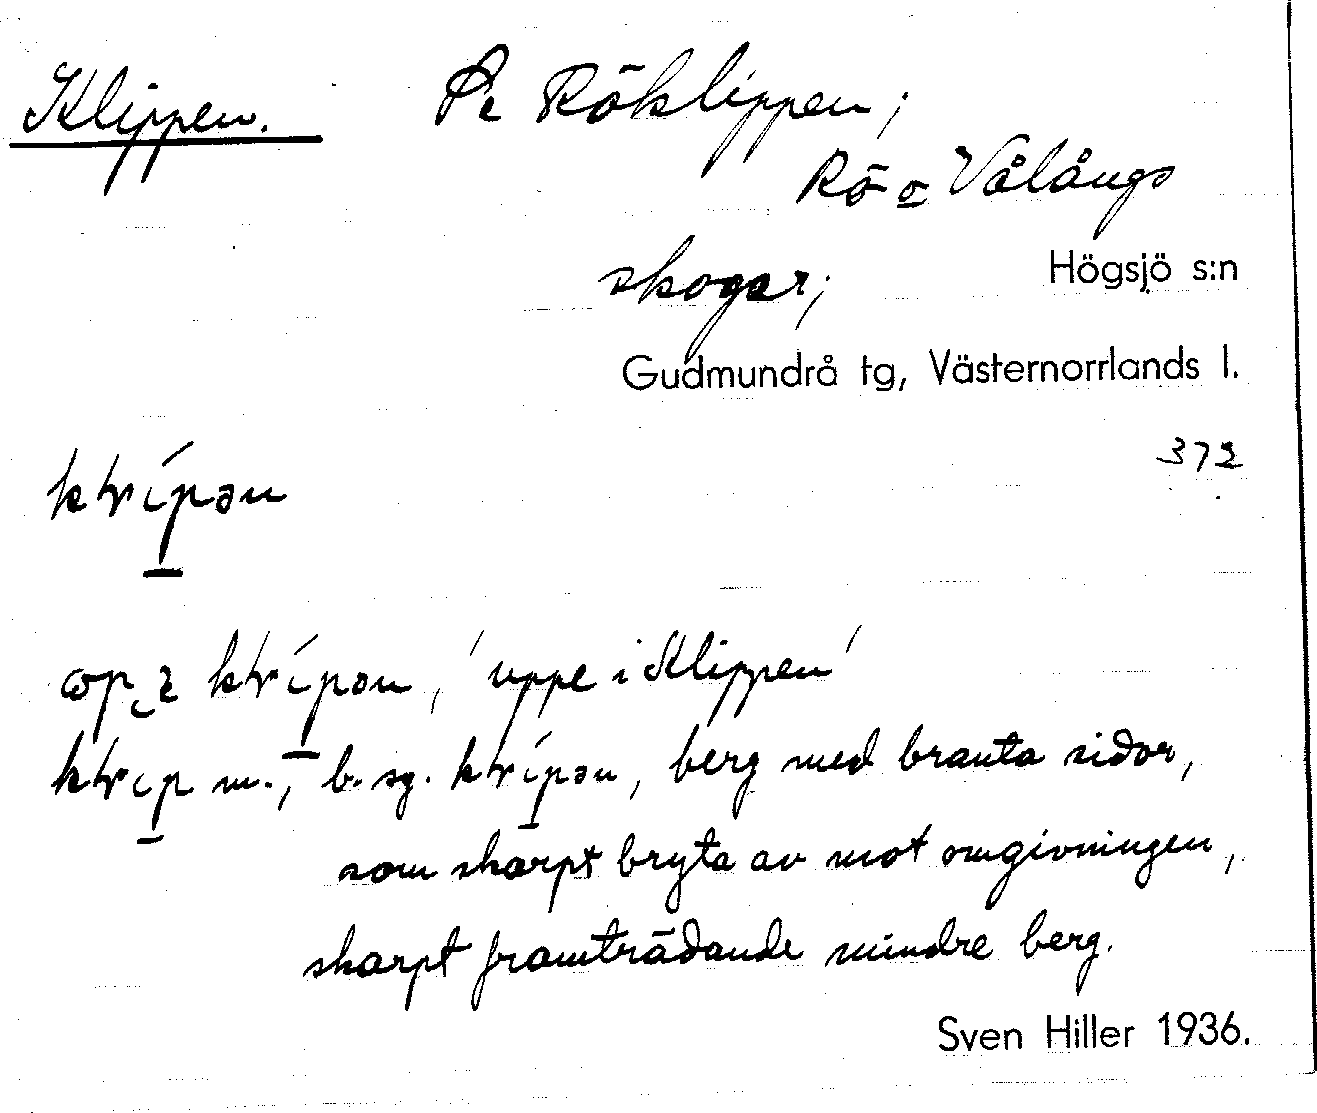 Klippen. På Röklippen;
Rö o Vålångs
skogar; Högsjö s:n
Gudmundrå tg, Västernorrlands l.
372
uppe i Klippen'
m., b. sg. berg med branta sidor,
som skarpt bryta av mot omgivningen,
skarpt framträdande mindre berg.
Sven Hiller 1936.